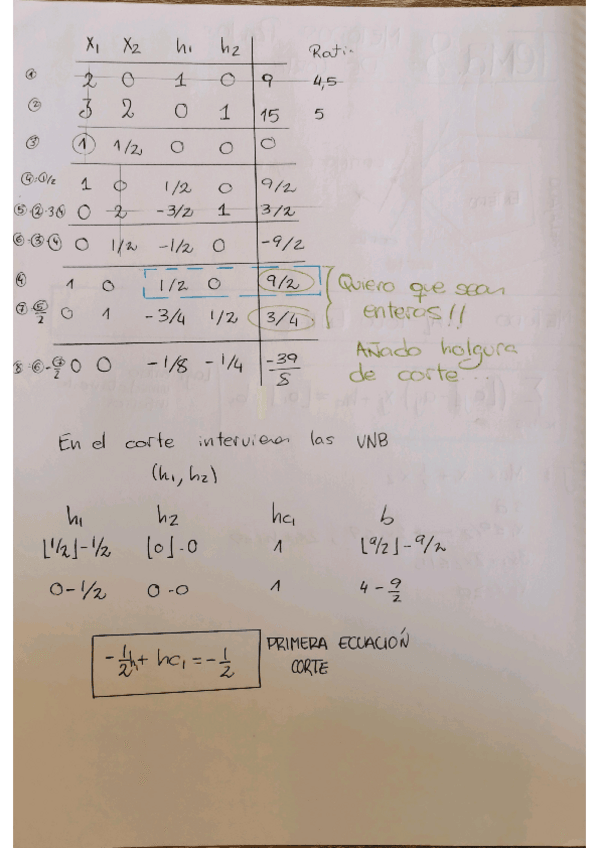 X₁ X₂ h₁ h₂ Rati
① 2 0 1 0 9 4,5
② 3 2 0 1 15 5
③ 1 1/2 0 0 0
④·①/2 1 0 1/2 0 9/2
⑤·②-3④ 0 2 -3/2 1 3/2
⑥·③-④ 0 1/2 -1/2 0 -9/2
④ 1 0 1/2 0 9/2 Quiero que sean
⑦ ⑤/2 0 1 -3/4 1/2 3/4 enteros!!
Añado holgura
8·⑥-⑦/2 0 0 -1/8 -1/4 -39/8 de corte...
En el corte intervienen las VNB
(h₁, h₂)
h₁ h₂ hc₁ b
⌊1/2⌋-1/2 ⌊0⌋-0 1 ⌊9/2⌋-9/2
0-1/2 0-0 1 4-9/2
-1/2h₁+ hc₁ = -1/2 PRIMERA ECUACIÓN
CORTE